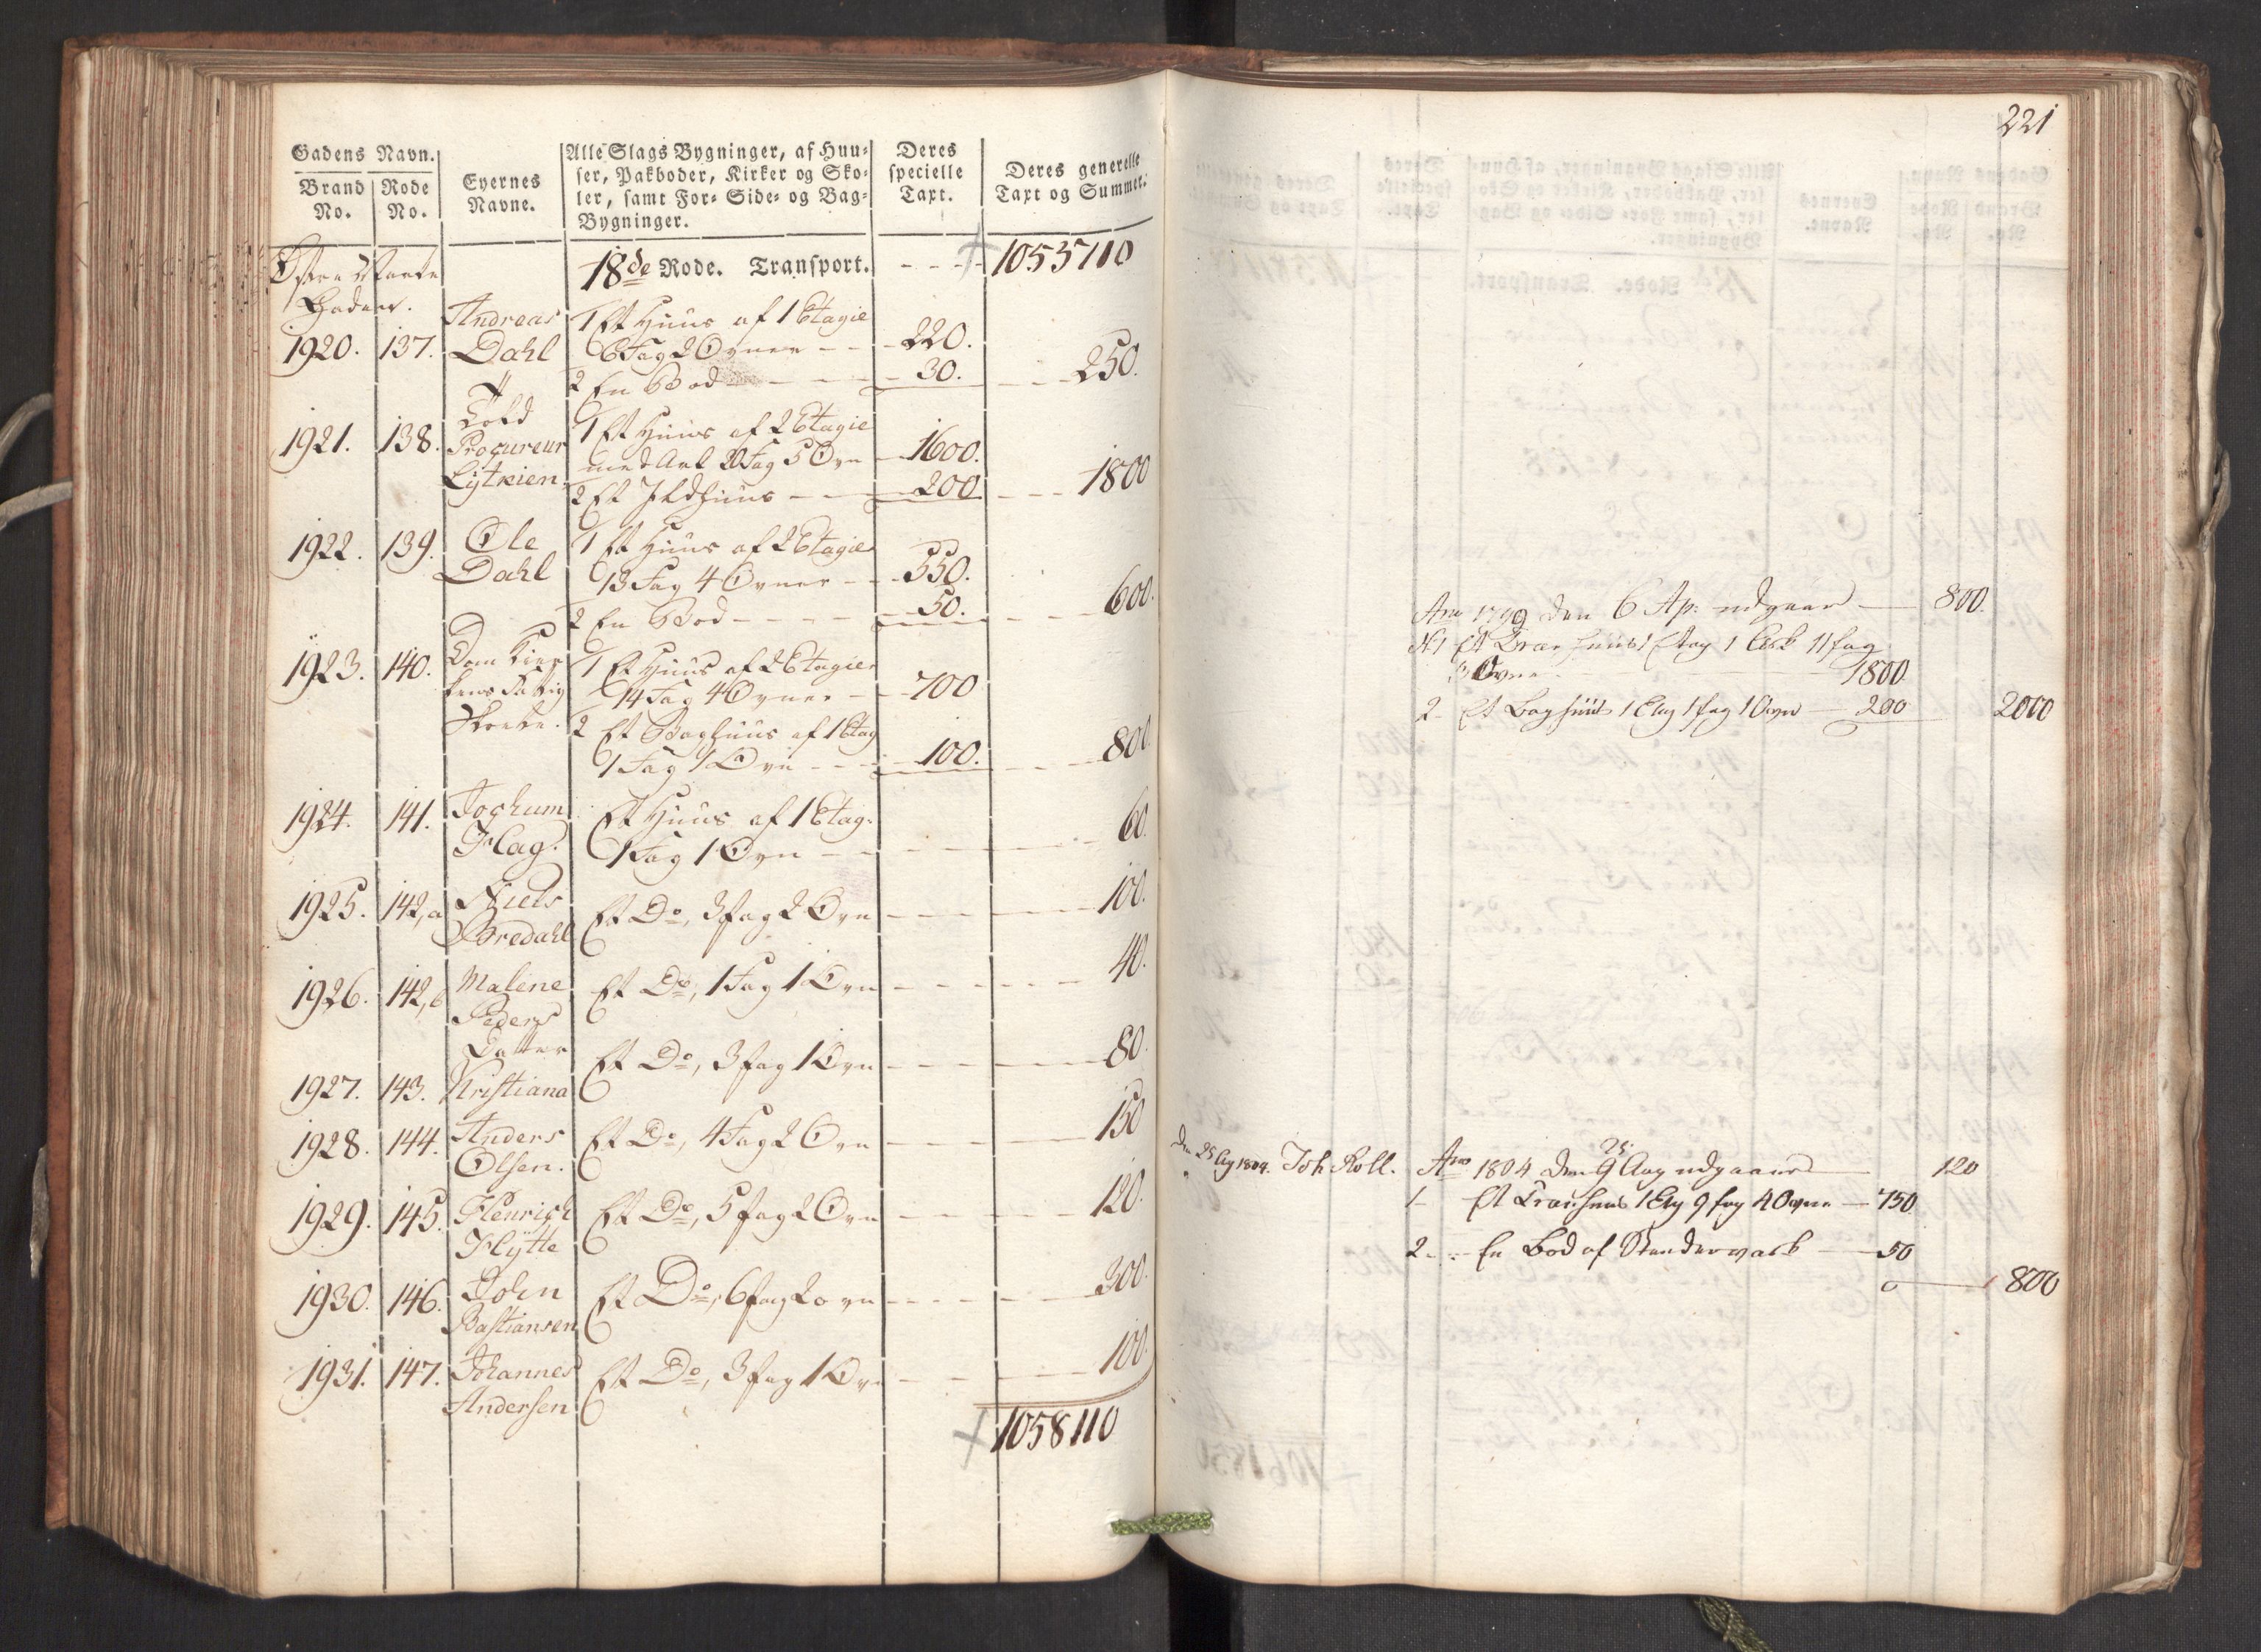 Gadens Navn.
Brand No.
Rode No.
Eyernes Navne.
Alle Slags Bygninger, af Huu-
ser, Pakboder, Kirker og Sko-
ler, samt For- Side- og Bag-
Bygninger.
Deres
specielle
Taxt.
Deres generelle
Taxt og Summer.
18de Rode. Transport. - - - 1053710
Andreas 1 Et Huus af 1 Etagie
1920. 137. Dahl 6 Fag 2 Ovner - - 220.
2 En Bod - - - 30. - - 250.
1921. 138. Procureur 1 Et Huus af 2 Etagie
Lÿtkien. 20 Fag 5 Ovn - 1600.
2 Et Ildhuus - - 200 - - - 1800
1922. 139. Ole 1 Et Huus af 2 Etagie
Dahl 13 Fag 4 Ovner - - 550.
2 En Bod - - - - 50. - - 600.
1923. 140. Dom Kir 1 Et Huus af 2 Etagier
kens Fattig 14 Fag 4 Ovner - 700
2 Et Baghuus af 1 Etag
1 Fag 1 Ovn - - - 100. - - 800
1924. 141. Jochum Et Huus af 1 Etag.
Flag. 1 Fag 1 Ovn - - - 60.
1925. 142,a Niels Et Do, 3 fag 2 Ovn - - - 100.
Bredahl
1926. 142,b Malene Et Do, 1 Fag 1 Ovn - - - 40.
Peders
Datter
1927. 143. Kristiana Et Do, 3 fag 1 Ovn - - - 80.
1928. 144. Anders Et Do, 4 Fag 2 Ovn - - - 150
Olsen.
1929. 145. Henrich Et Do, 5 fag 2 Ovn - - - 120.
Flÿtte
1930. 146. John Et Do, 6 fag 2 ovn - - - 300.
Bastiansen
1931. 147. Johannes Et Do, 3 fag 1 Ovn - - - 100.
Andersen
1058110
221
Ano 1799 den 6 Ap: udgaaer - 800.
No 1 Et Træe huus 1 Etag 11 fag
Ovne - 1800.
2- Et Baghuus 1 Etag 1 fag 1 Ovn - 200 2000
Den 25 Ag 1804. Joh Roll. Ano 1804 den 9 25 Aug udgaaer - 120
1- Et Træehuus 1 Etg 9 fag 4 Ovne - 750
2- En Bod af Stenderværk - 50
800